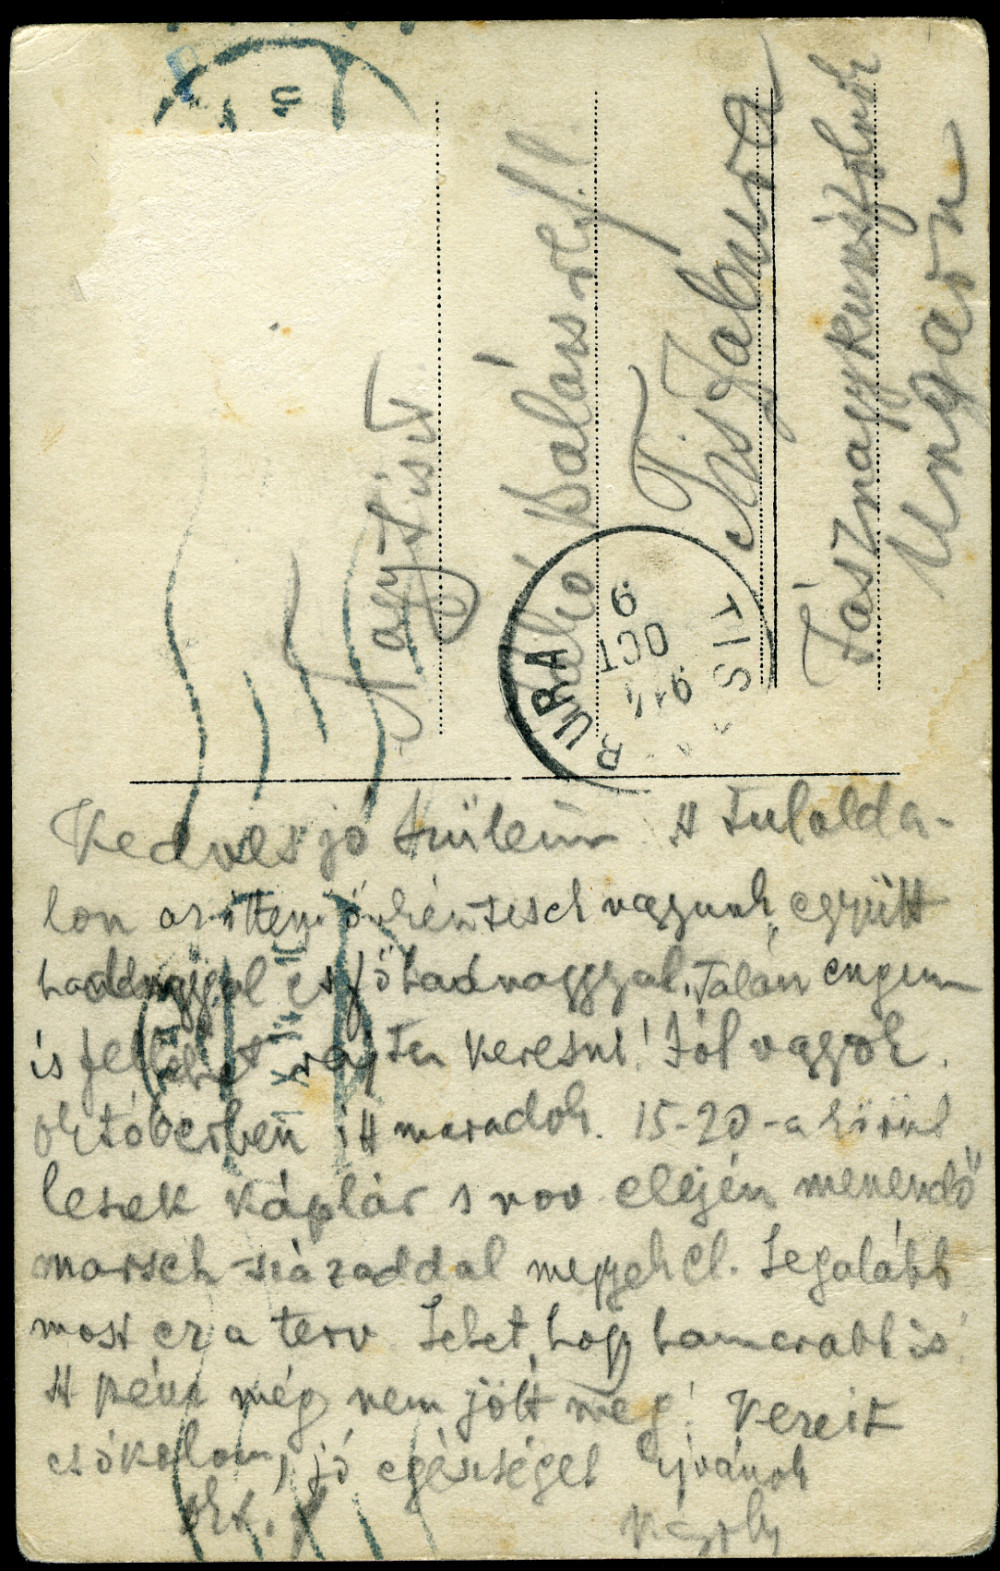 Nagyságos
Balázs
Tiszabura
Jásznagykunszolnok
Ungarn
TISZABURA
914 OCT 9
Kedves jó Szüleim A tulolda-
lon az itteni önkéntesek vagyunk együtt
hadnaggyal és főhadnaggyal. Talán engem
is fel lehet rajta keresni! Jól vagyok.
Októberben itt maradok. 15-20-a körül
leszek káplár s nov elején menendő
marsch-századdal megyek el. Legalább
most ez a terv Lehet, hogy hamarabb is!
A pénz még nem jött meg! Kezeit
csókolom, jó egészséget kívánok
Okt. 7 Károly